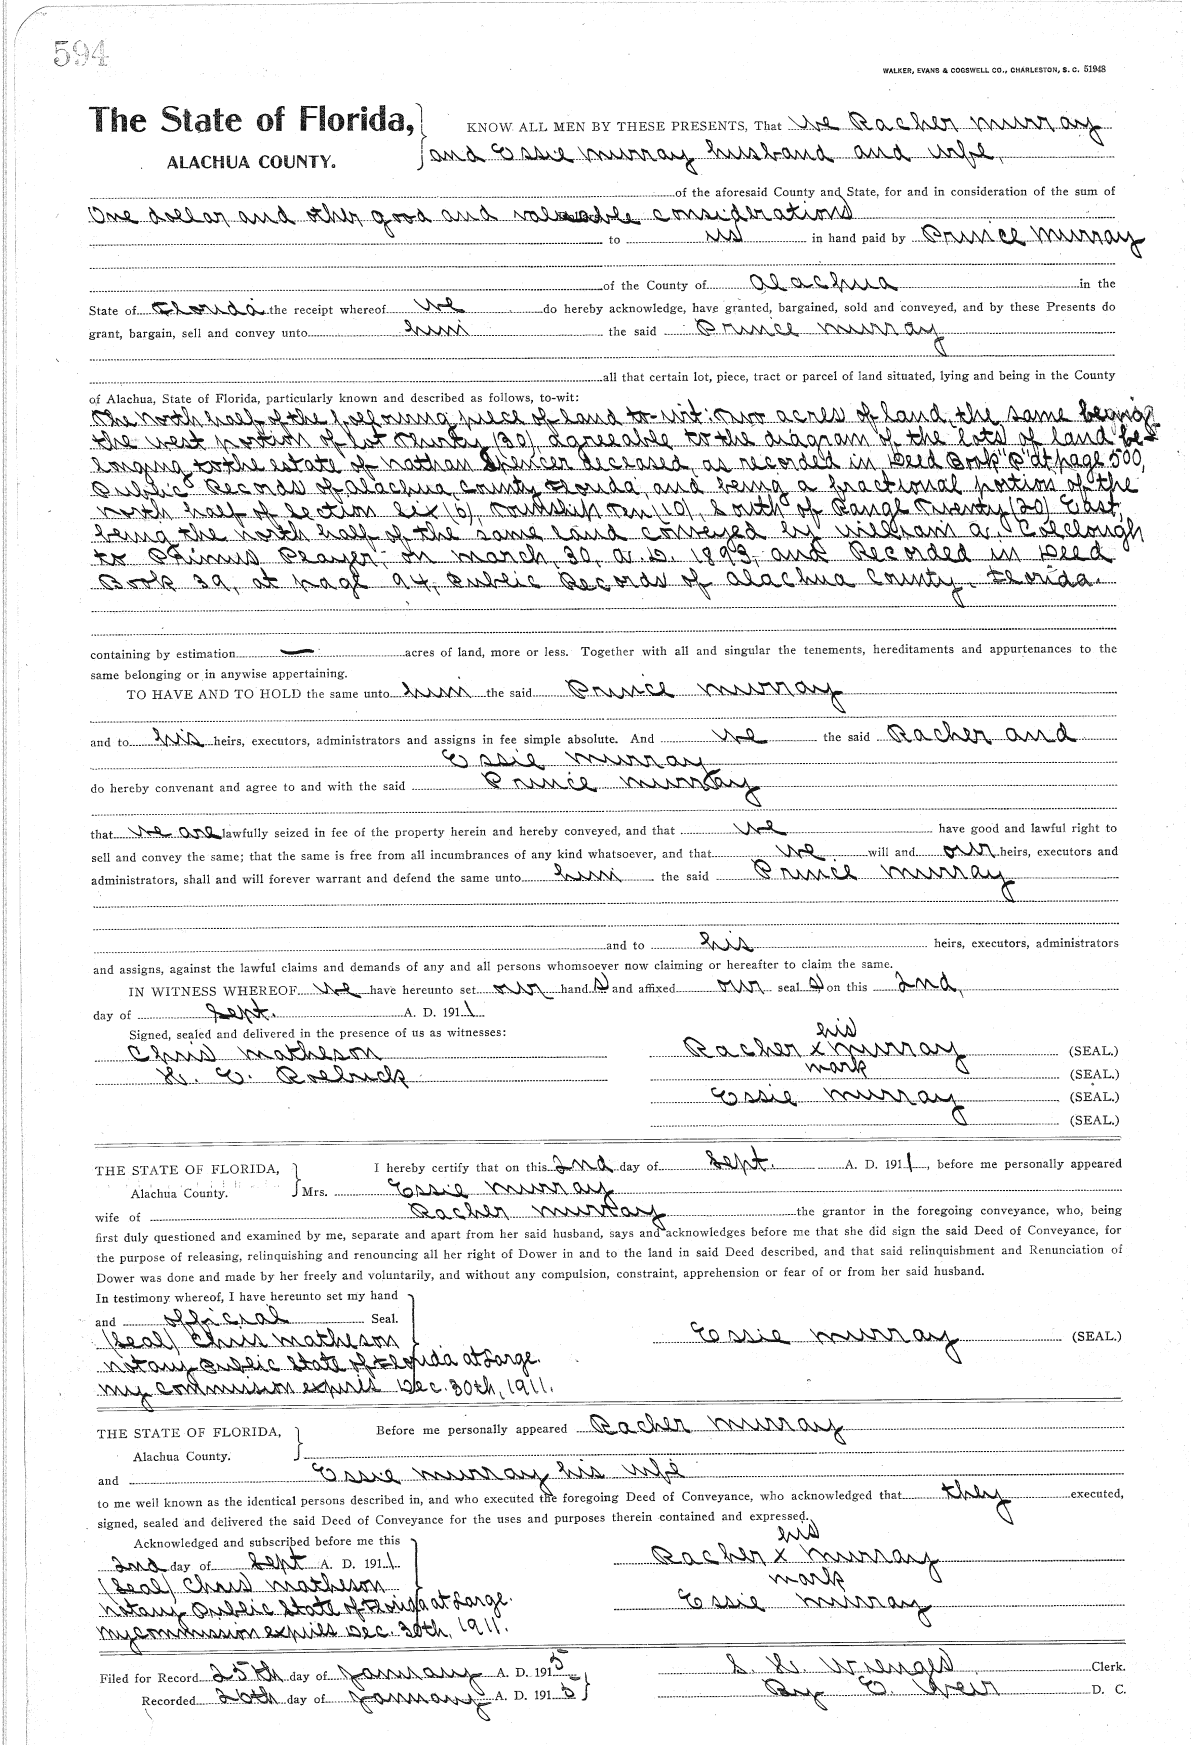 594
WALKER, EVANS & COGSWELL CO., CHARLESTON, S. C. 51948
The State of Florida,
ALACHUA COUNTY.
KNOW ALL MEN BY THESE PRESENTS, That We Racher Murray
and Essie Murray husband and wife,
of the aforesaid County and State, for and in consideration of the sum of
One dollar and other good and valuable considerations
to us in hand paid by Prince Murray
of the County of Alachua in the
State of Florida the receipt whereof we do hereby acknowledge, have granted, bargained, sold and conveyed, and by these Presents do
grant, bargain, sell and convey unto him the said Prince Murray
all that certain lot, piece, tract or parcel of land situated, lying and being in the County
of Alachua, State of Florida, particularly known and described as follows, to-wit:
The North half of the following piece of land to-wit: Two acres of land, the same being
the west portion of lot Thirty (30), agreeable to the diagram of the lots of land be-
longing to the estate of Nathan Spencer deceased, as recorded in Deed Book "P" at page 500,
Public Records of Alachua County Florida, and being a fractional portion of the
north half of Section Six (6), Township Ten (10), South of Range Twenty (20) East,
being the north half of the same land conveyed by William A. Colclough
to Primus Player, on March, 30, A. D. 1893, and Recorded in Deed
Book 39, at page 94, Public Records of Alachua County, Florida.
containing by estimation — acres of land, more or less. Together with all and singular the tenements, hereditaments and appurtenances to the
same belonging or in anywise appertaining.
TO HAVE AND TO HOLD the same unto him the said Prince Murray
and to his heirs, executors, administrators and assigns in fee simple absolute. And we the said Racher and
Essie Murray
do hereby convenant and agree to and with the said Prince Murray
that we are lawfully seized in fee of the property herein and hereby conveyed, and that we have good and lawful right to
sell and convey the same; that the same is free from all incumbrances of any kind whatsoever, and that we will and our heirs, executors and
administrators, shall and will forever warrant and defend the same unto him the said Prince Murray
and to his heirs, executors, administrators
and assigns, against the lawful claims and demands of any and all persons whomsoever now claiming or hereafter to claim the same.
IN WITNESS WHEREOF we have hereunto set our hand s and affixed our seal s on this 2nd,
day of Sept. A. D. 1911.
Signed, sealed and delivered in the presence of us as witnesses:
his
Chris Matheson Racher x Murray (SEAL.)
H. E. Roebuck mark (SEAL.)
Essie Murray (SEAL.)
(SEAL.)
THE STATE OF FLORIDA, I hereby certify that on this 2nd day of Sept. A. D. 1911, before me personally appeared
Alachua County. Mrs. Essie Murray
wife of Racher Murray the grantor in the foregoing conveyance, who, being
first duly questioned and examined by me, separate and apart from her said husband, says and acknowledges before me that she did sign the said Deed of Conveyance, for
the purpose of releasing, relinquishing and renouncing all her right of Dower in and to the land in said Deed described, and that said relinquishment and Renunciation of
Dower was done and made by her freely and voluntarily, and without any compulsion, constraint, apprehension or fear of or from her said husband.
In testimony whereof, I have hereunto set my hand
and official Seal.
(Seal) Chris Matheson Essie Murray (SEAL.)
Notary Public State of Florida at Large.
My Commission expires Dec. 30th, 1911.
THE STATE OF FLORIDA, Before me personally appeared Racher Murray
Alachua County.
and Essie Murray his wife
to me well known as the identical persons described in, and who executed the foregoing Deed of Conveyance, who acknowledged that they executed,
signed, sealed and delivered the said Deed of Conveyance for the uses and purposes therein contained and expressed.
Acknowledged and subscribed before me this his
2nd day of Sept A. D. 1911. Racher x Murray
(Seal) Chris Matheson mark
Notary Public State of Florida at Large. Essie Murray
My commission expires Dec. 30th, 1911.
Filed for Record 25th day of January A. D. 1915 Clerk.
Recorded 26th day of January A. D. 1915 By E. Weir D. C.